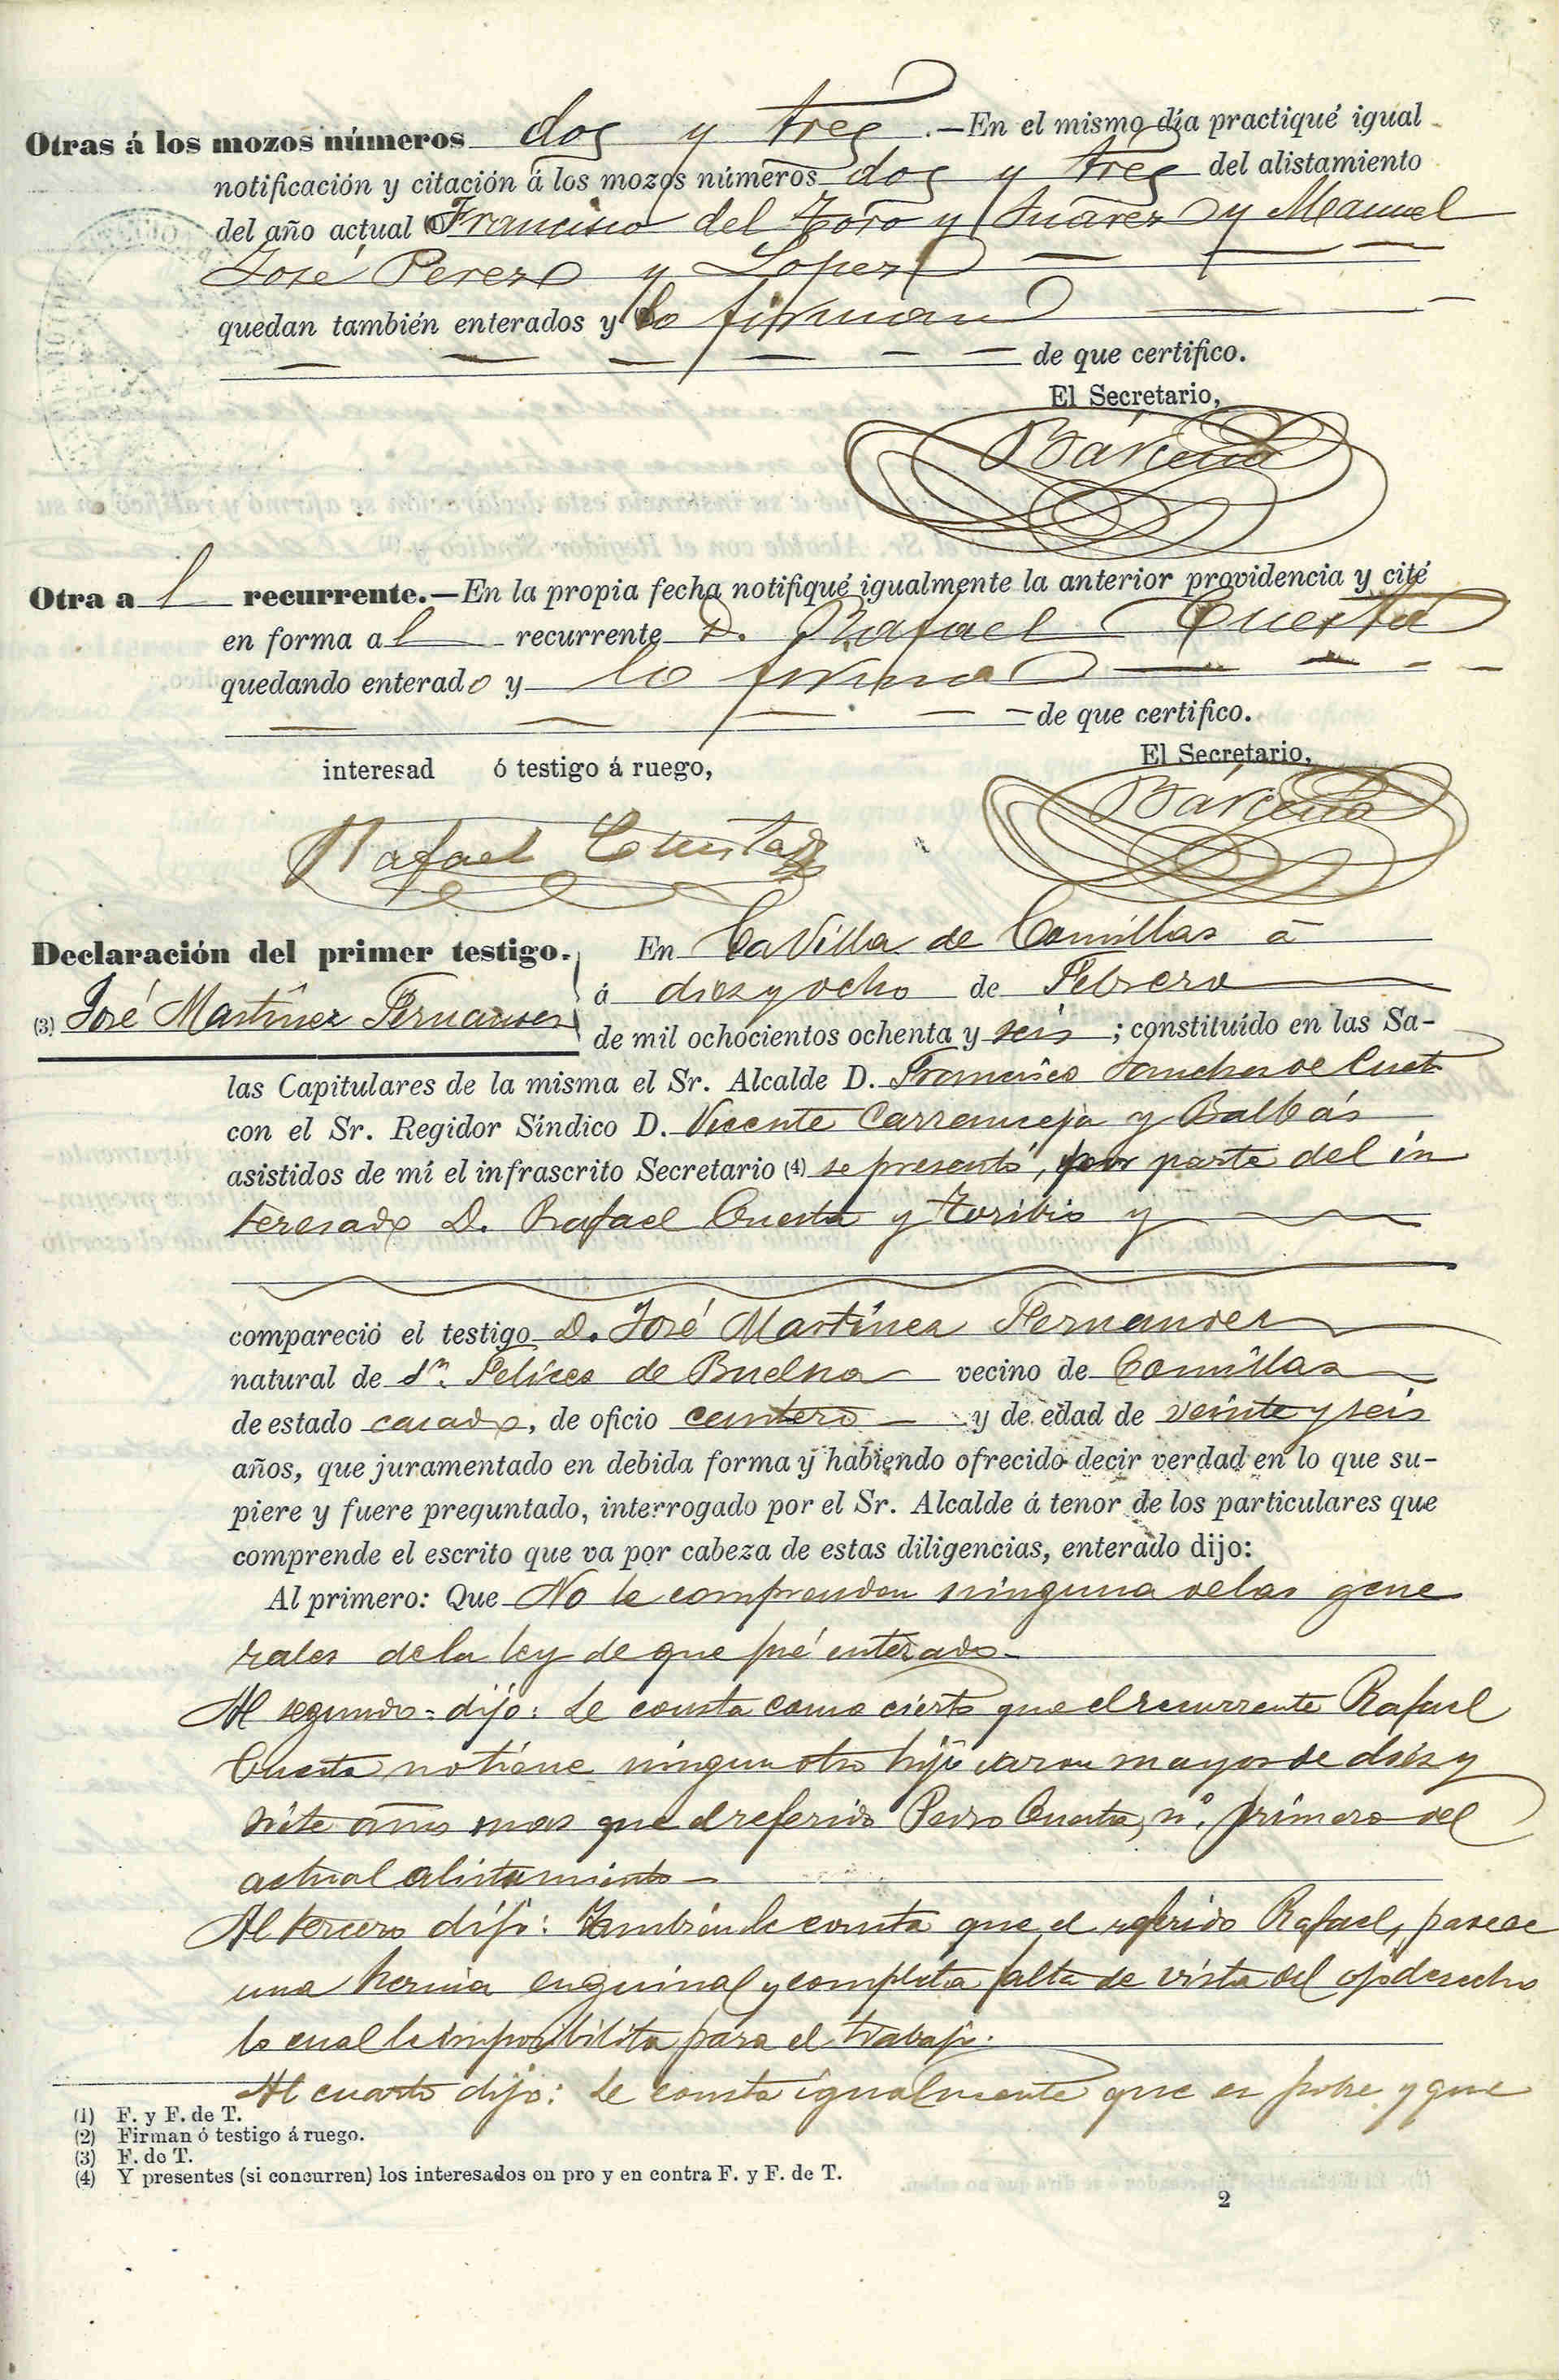 Otras á los mozos números dos y tres .—En el mismo día practiqué igual
notificación y citación á los mozos números dos y tres del alistamiento
del año actual (1) Francisco del Toro y Suarez y Manuel
José Perez y Lopez
quedan también enterados y lo firman
de que certifico.
El Secretario,
Bárcena
Otra a l recurrente.—En la propia fecha notifiqué igualmente la anterior providencia y cité
en forma a l recurrente D. Rafael Cuesta
quedando enterado y lo firma
de que certifico.
interesad ó testigo á ruego,
El Secretario,
Rafael Cuesta
Bárcena
Declaración del primer testigo.
(3) José Martínez Fernandez
En La Villa de Comillas á
á diez y ocho de Febrero
de mil ochocientos ochenta y seis ; constituído en las Sa-
las Capitulares de la misma el Sr. Alcalde D. Francisco Sanchez de Cueto
con el Sr. Regidor Síndico D. Vicente Carranceja y Balbás
asistidos de mí el infrascrito Secretario (4) se presentó, por parte del in
teresado D. Rafael Cuesta y Toribio y
compareció el testigo D. José Martínez Fernandez
natural de Sn. Felices de Buelna vecino de Comillas
de estado casado, de oficio cantero y de edad de veinte y seis
años, que juramentado en debida forma y habiendo ofrecido decir verdad en lo que su-
piere y fuere preguntado, interrogado por el Sr. Alcalde á tenor de los particulares que
comprende el escrito que va por cabeza de estas diligencias, enterado dijo:
Al primero: Que No le comprenden ninguna de las gene
rales de la ley de que fué enterado
Al segundo = dijo: Le consta como cierto que el recurrente Rafael
Cuesta no tiene ningun otro hijo varon mayor de diez y
siete años mas que el referido Pedro Cuesta, nº. primero del
actual alistamiento
Al tercero dijo: Tambien le consta que el referido Rafael, padece
una hernia enguinal y completa falta de vista del ojo derecho
lo cual le imposibilita para el trabajo.
Al cuarto dijo: Le consta igualmente que es pobre y que
(1) F. y F. de T.
(2) Firman ó testigo á ruego.
(3) F. de T.
(4) Y presentes (si concurren) los interesados en pro y en contra F. y F. de T.
2